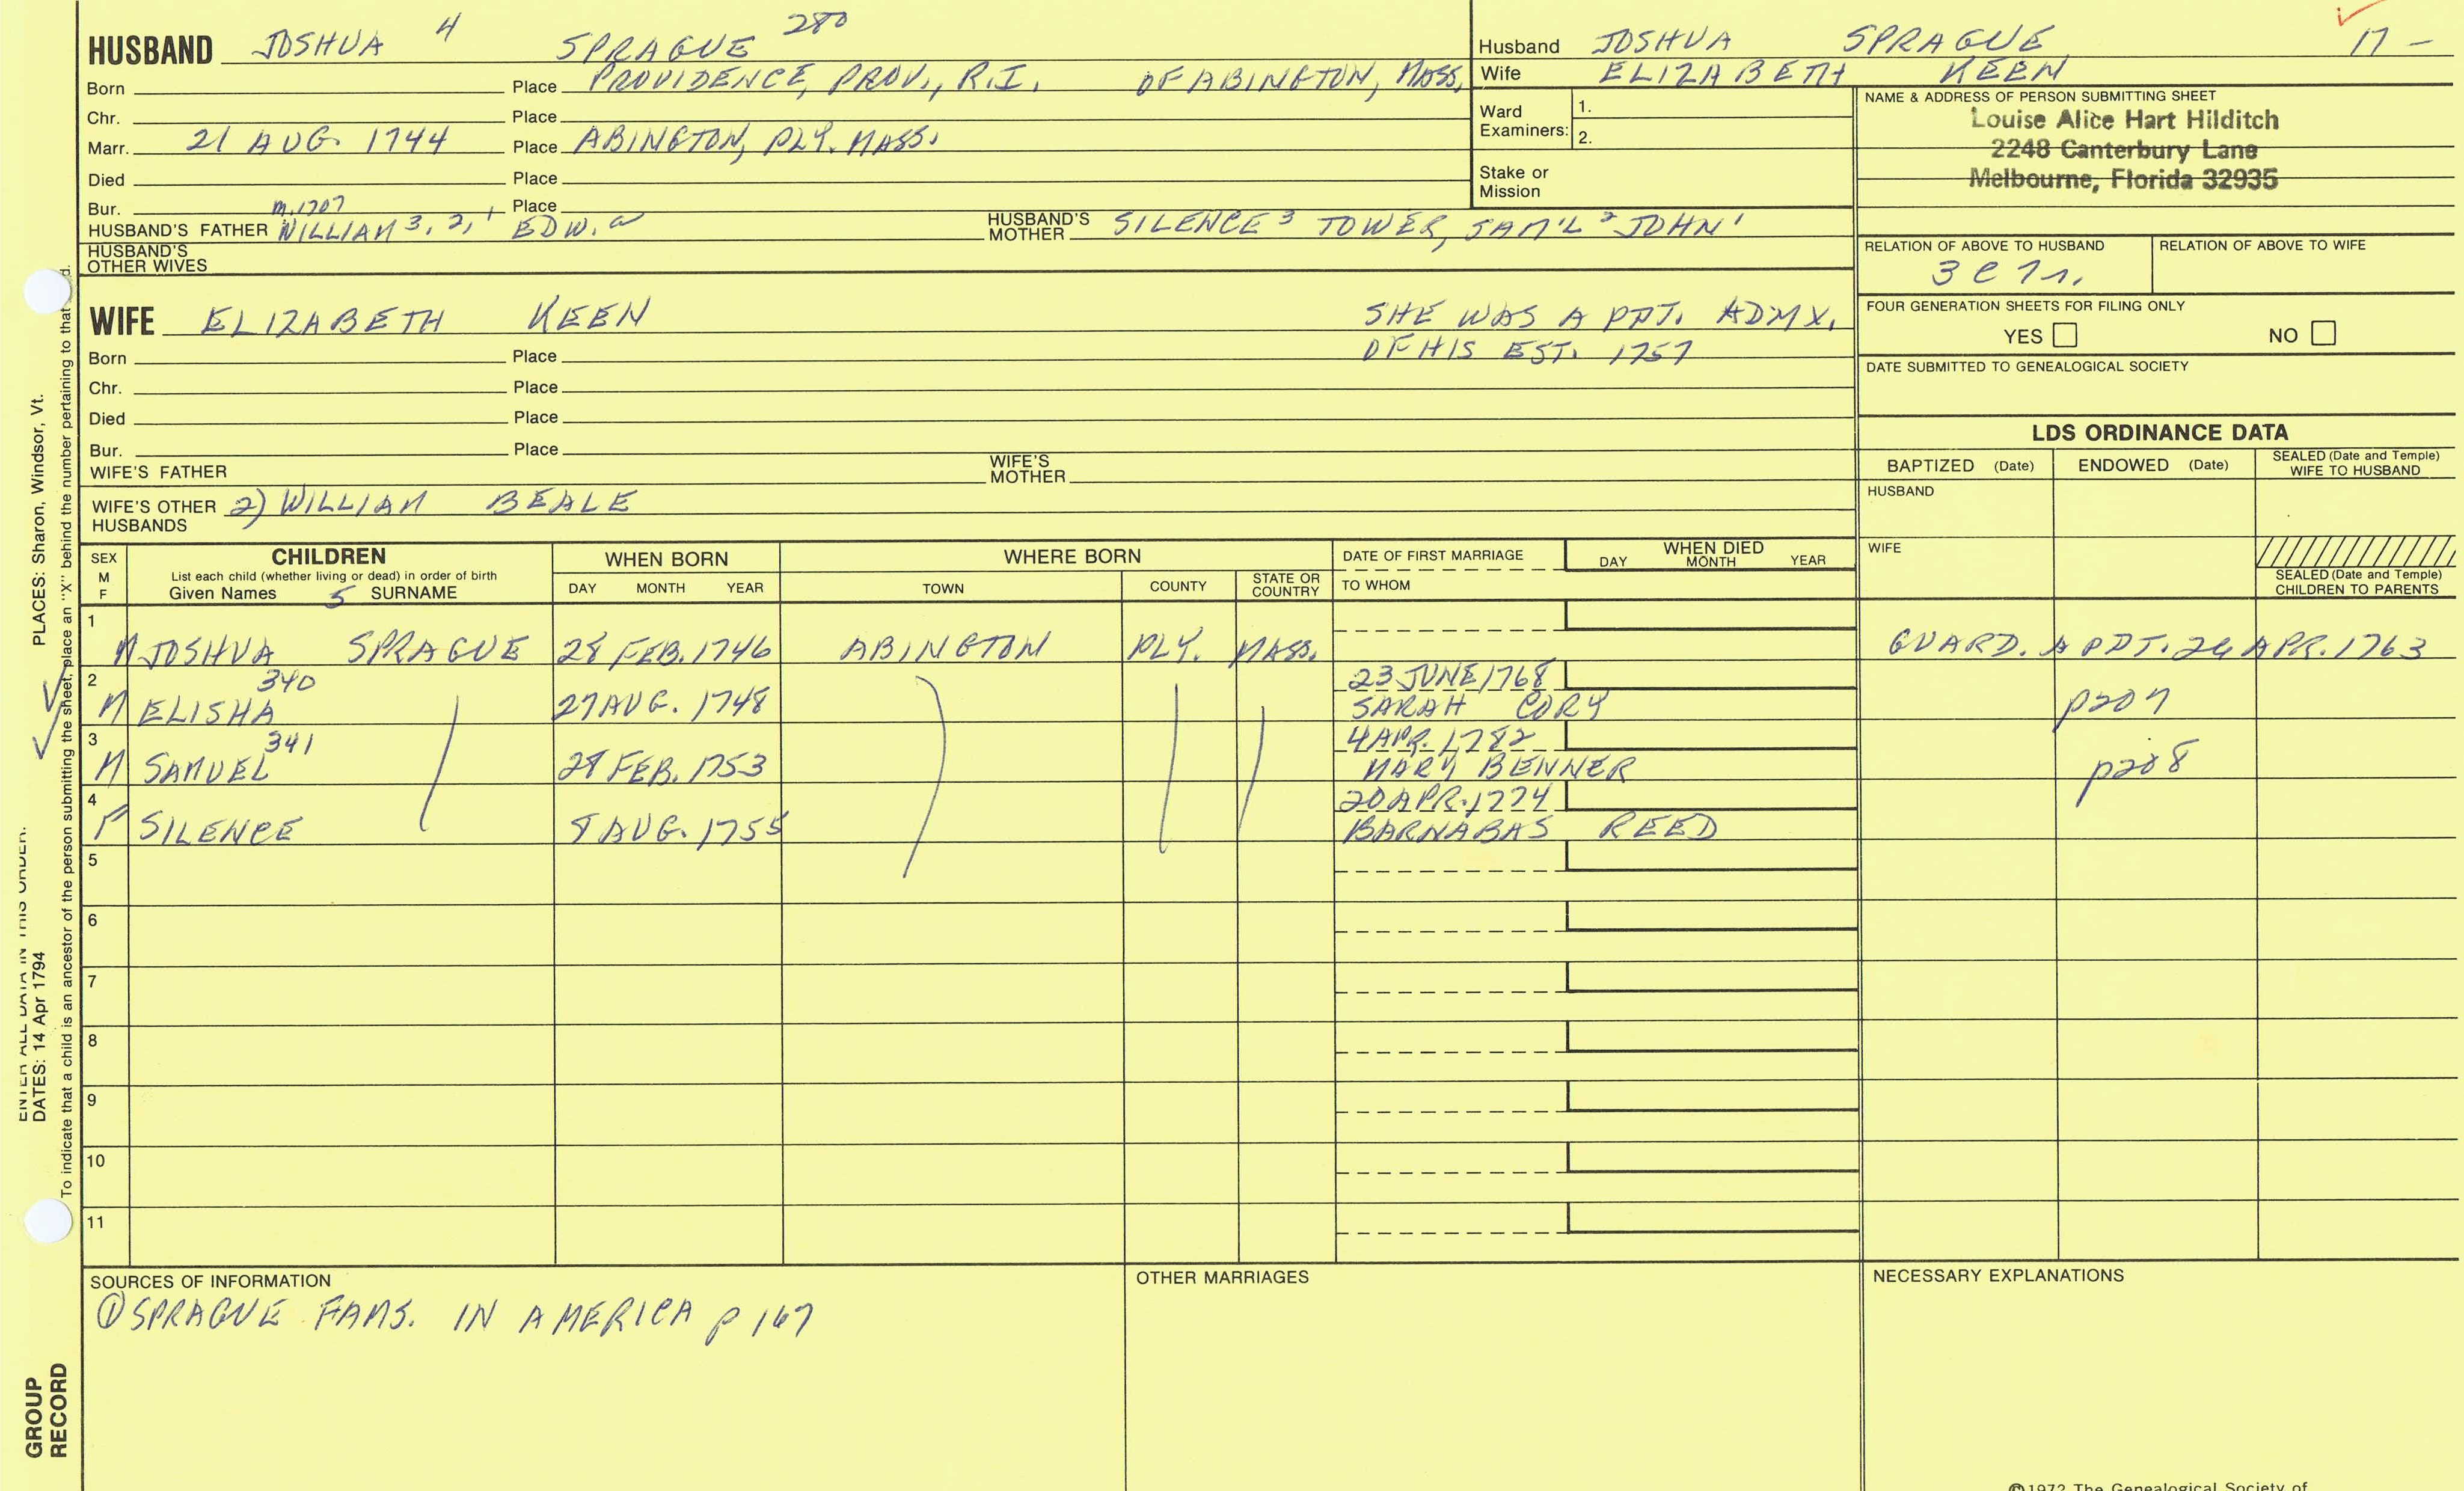 HUSBAND JOSHUA 4 SPRAGUE 280
Born Place PROVIDENCE, PROV., R.I. OF ABINGTON, MASS.
Chr. Place
Marr. 21 AUG. 1744 Place ABINGTON, PLY. MASS.
Died Place
Bur. Place
m.1707
HUSBAND'S FATHER WILLIAM 3, 2, 1 EDW. HUSBAND'S MOTHER SILENCE 3 TOWER, SAM'L 2 JOHN 1
HUSBAND'S OTHER WIVES
Husband JOSHUA SPRAGUE 17 -
Wife ELIZABETH KEEN
Ward Examiners: 1.
2.
Stake or Mission
NAME & ADDRESS OF PERSON SUBMITTING SHEET
Louise Alice Hart Hilditch
2248 Canterbury Lane
Melbourne, Florida 32935
RELATION OF ABOVE TO HUSBAND RELATION OF ABOVE TO WIFE
FOUR GENERATION SHEETS FOR FILING ONLY
YES NO
DATE SUBMITTED TO GENEALOGICAL SOCIETY
WIFE ELIZABETH KEEN SHE WAS APPT. ADMX.
OF HIS EST. 1757
Born Place
Chr. Place
Died Place
Bur. Place
WIFE'S FATHER WIFE'S MOTHER
WIFE'S OTHER HUSBANDS 2) WILLIAM BEALE
LDS ORDINANCE DATA
BAPTIZED (Date) ENDOWED (Date) SEALED (Date and Temple) WIFE TO HUSBAND
HUSBAND
WIFE
SEALED (Date and Temple) CHILDREN TO PARENTS
SEX M F CHILDREN WHEN BORN WHERE BORN DATE OF FIRST MARRIAGE WHEN DIED
List each child (whether living or dead) in order of birth
Given Names 5 SURNAME DAY MONTH YEAR TOWN COUNTY STATE OR COUNTRY TO WHOM DAY MONTH YEAR
1
M JOSHUA SPRAGUE 28 FEB. 1746 ABINGTON PLY. MASS. GUARD. APPT. 26 APR. 1763
2 340 23 JUNE 1768
M ELISHA 27 AUG. 1748 SARAH CORY p207
3 341 4 APR. 1782
M SAMUEL 28 FEB. 1753 MARY BENNER p208
4 20 APR. 1774
F SILENCE 8 AUG. 1755 BARNABAS REED
5
6
7
8
9
10
11
SOURCES OF INFORMATION OTHER MARRIAGES NECESSARY EXPLANATIONS
① SPRAGUE FAMS. IN AMERICA p 167
©1972 The Genealogical Society of
PLACES: Sharon, Windsor, Vt.
ENTER ALL DATA IN THIS ORDER:
DATES: 14 Apr 1794
To indicate that a child is an ancestor of the person submitting the sheet, place an "X" behind the number pertaining to that
GROUP RECORD